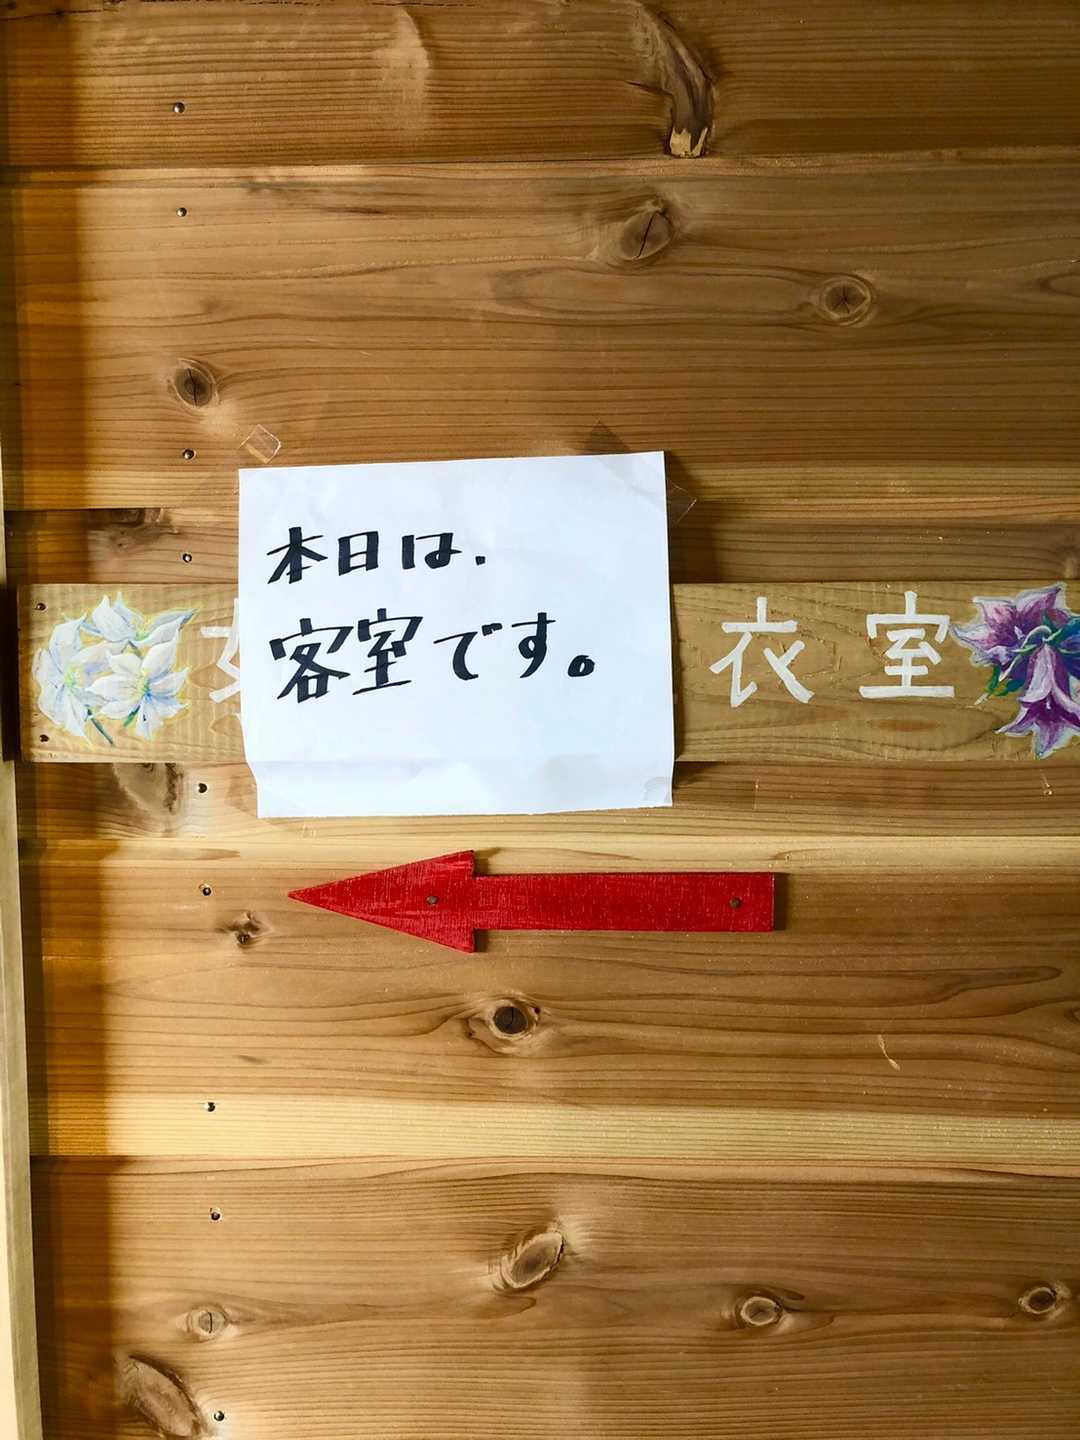 本日は、
客室です。
衣室